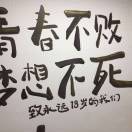 青春不败
梦想不死
致永远18岁的我们